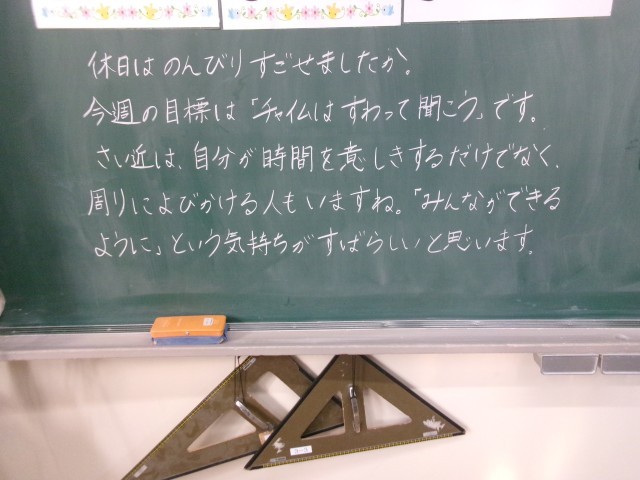 休日はのんびりすごせましたか。
今週の目標は「チャイムはすわって聞こう」です。
さい近は、自分が時間を意しきするだけでなく、
周りによびかける人もいますね。「みんなができる
ように」という気持ちがすばらしいと思います。
3-3